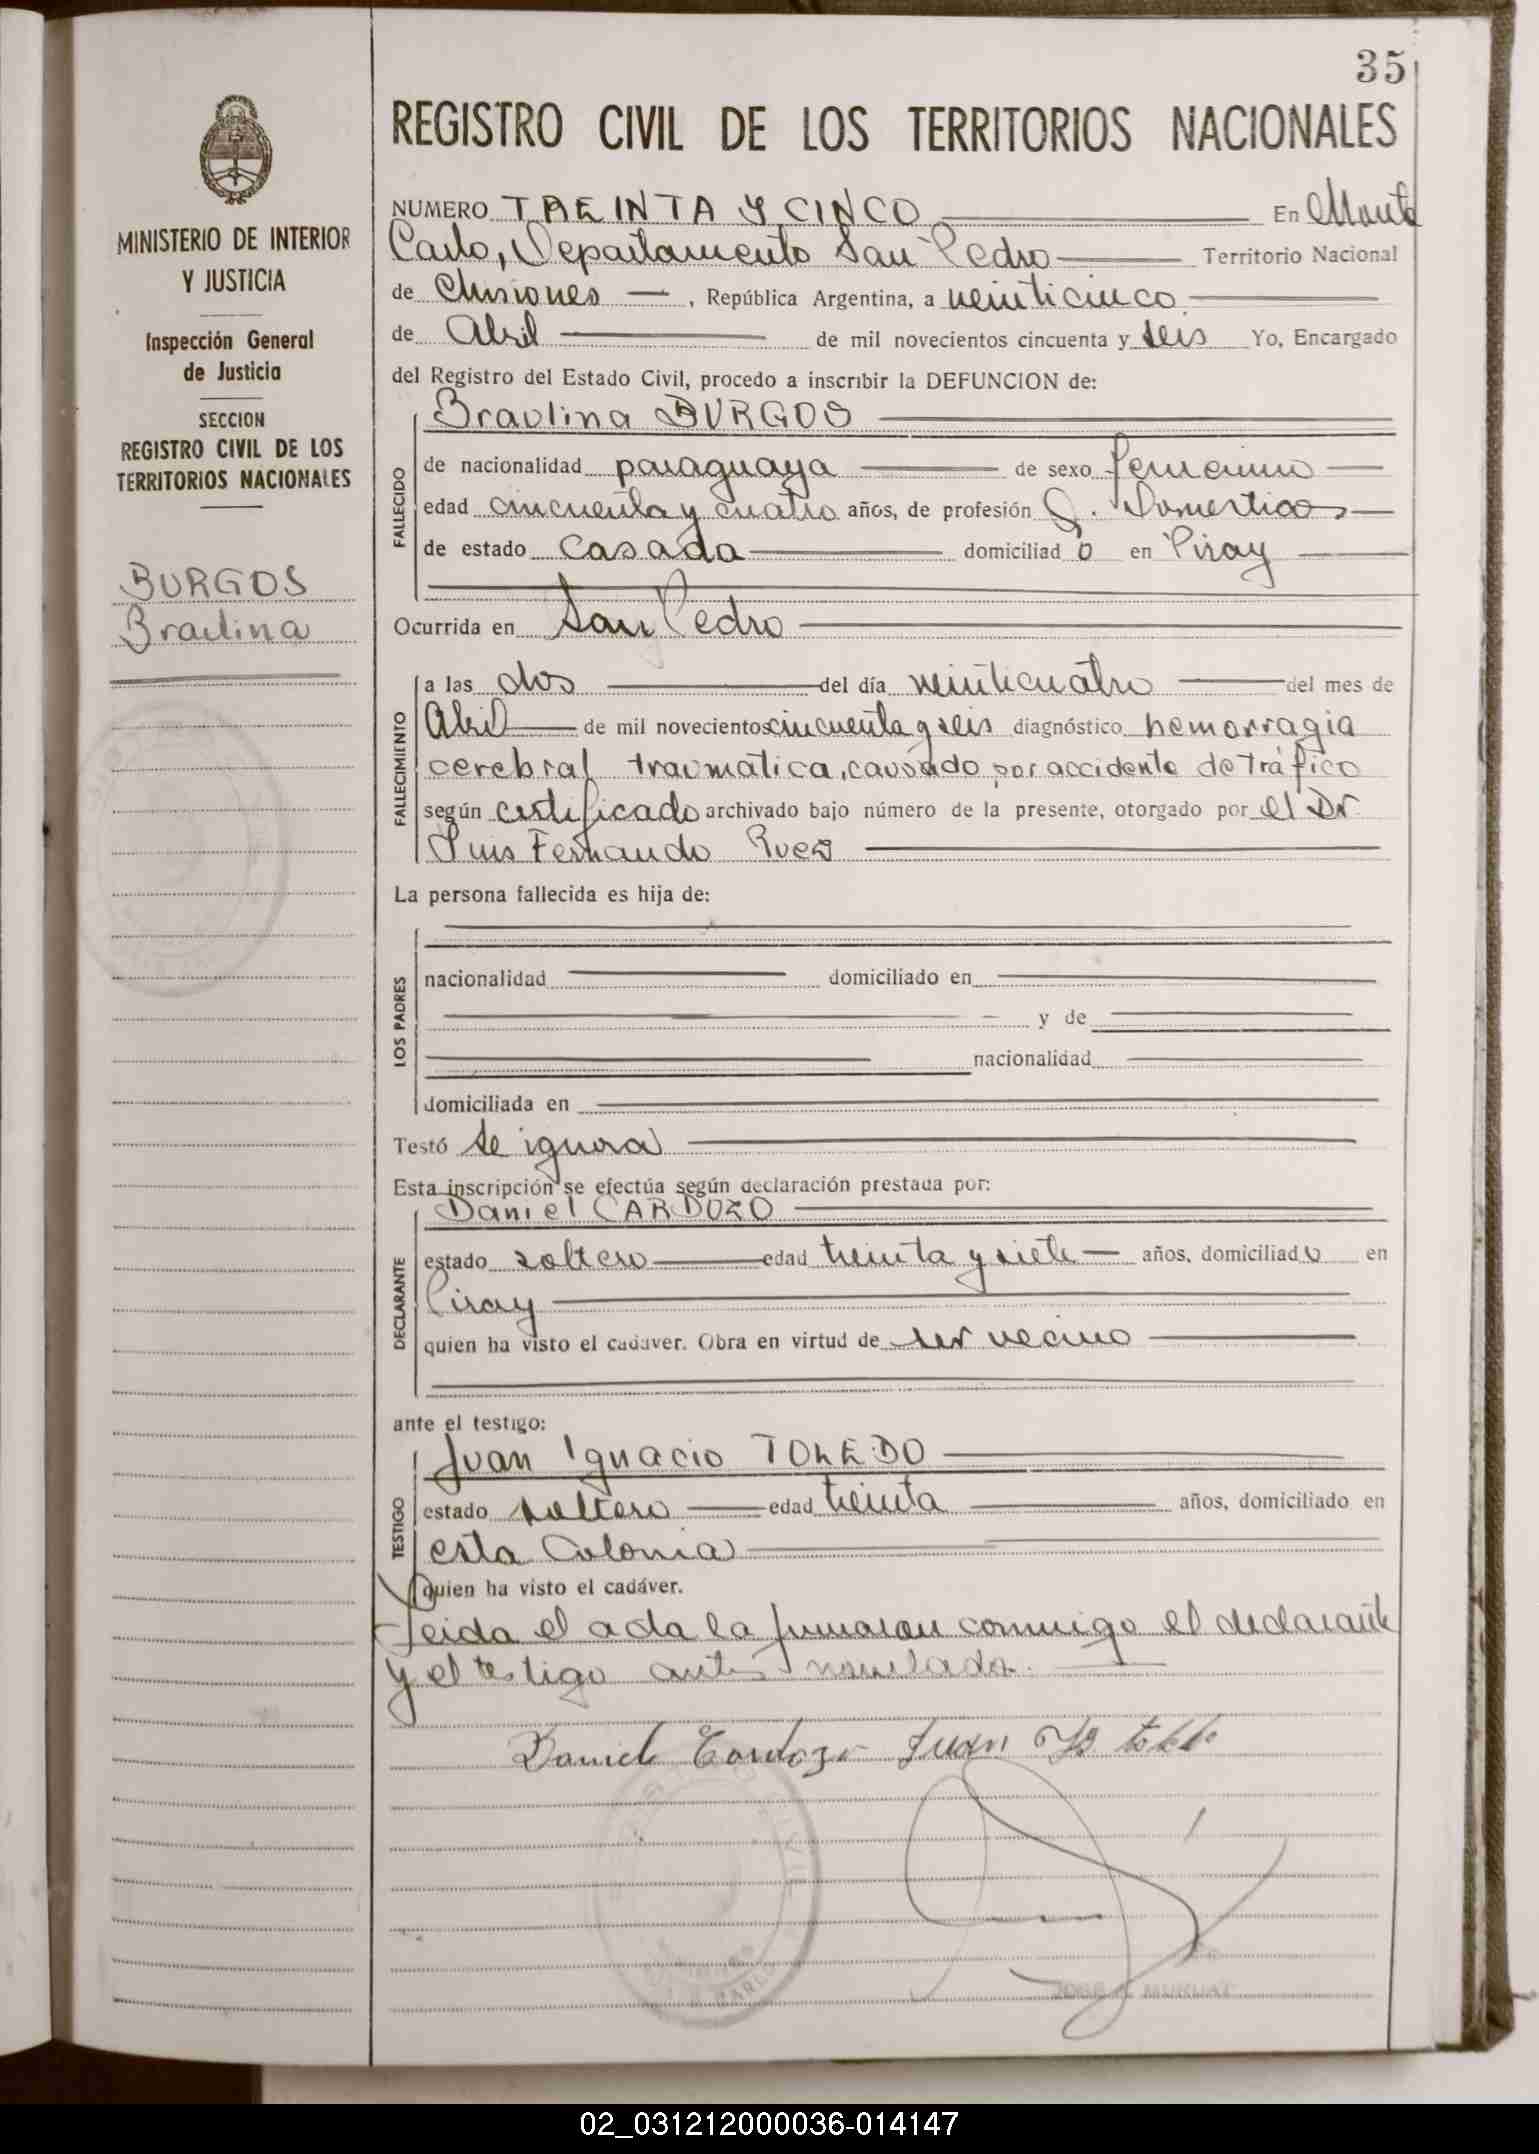 35
REGISTRO CIVIL DE LOS TERRITORIOS NACIONALES
MINISTERIO DE INTERIOR
Y JUSTICIA
Inspección General
de Justicia
SECCION
REGISTRO CIVIL DE LOS
TERRITORIOS NACIONALES
BURGOS
Braulina
NUMERO TREINTA Y CINCO En Monte
Carlo, Departamento San Pedro Territorio Nacional
de Misiones, República Argentina, a veinticinco
de Abril de mil novecientos cincuenta y seis Yo, Encargado
del Registro del Estado Civil, procedo a inscribir la DEFUNCION de:
Braulina BURGOS
FALLECIDO
de nacionalidad paraguaya de sexo femenino
edad cincuenta y cuatro años, de profesión Q. Domesticos
de estado casada domiciliad o en Piray
Ocurrida en San Pedro
FALLECIMIENTO
a las dos del día veinticuatro del mes de
Abril de mil novecientos cincuenta y seis diagnóstico hemorragia
cerebral traumática, causado por accidente de tráfico
según certificado archivado bajo número de la presente, otorgado por el Dr.
Luis Fernando
La persona fallecida es hija de:
LOS PADRES
nacionalidad domiciliado en
y de
nacionalidad
domiciliada en
Testó se ignora
Esta inscripción se efectúa según declaración prestada por:
Daniel CARDOZO
DECLARANTE
estado soltero edad treinta y siete años, domiciliado en
Piray
quien ha visto el cadaver. Obra en virtud de ser vecino
ante el testigo:
Juan Ignacio TOLEDO
TESTIGO
estado soltero edad treinta años, domiciliado en
esta Colonia
quien ha visto el cadáver.
Leida el acta la firmaron conmigo el declarante
y el testigo antes nombrados.
Daniel Cardozo Juan
02_031212000036-014147